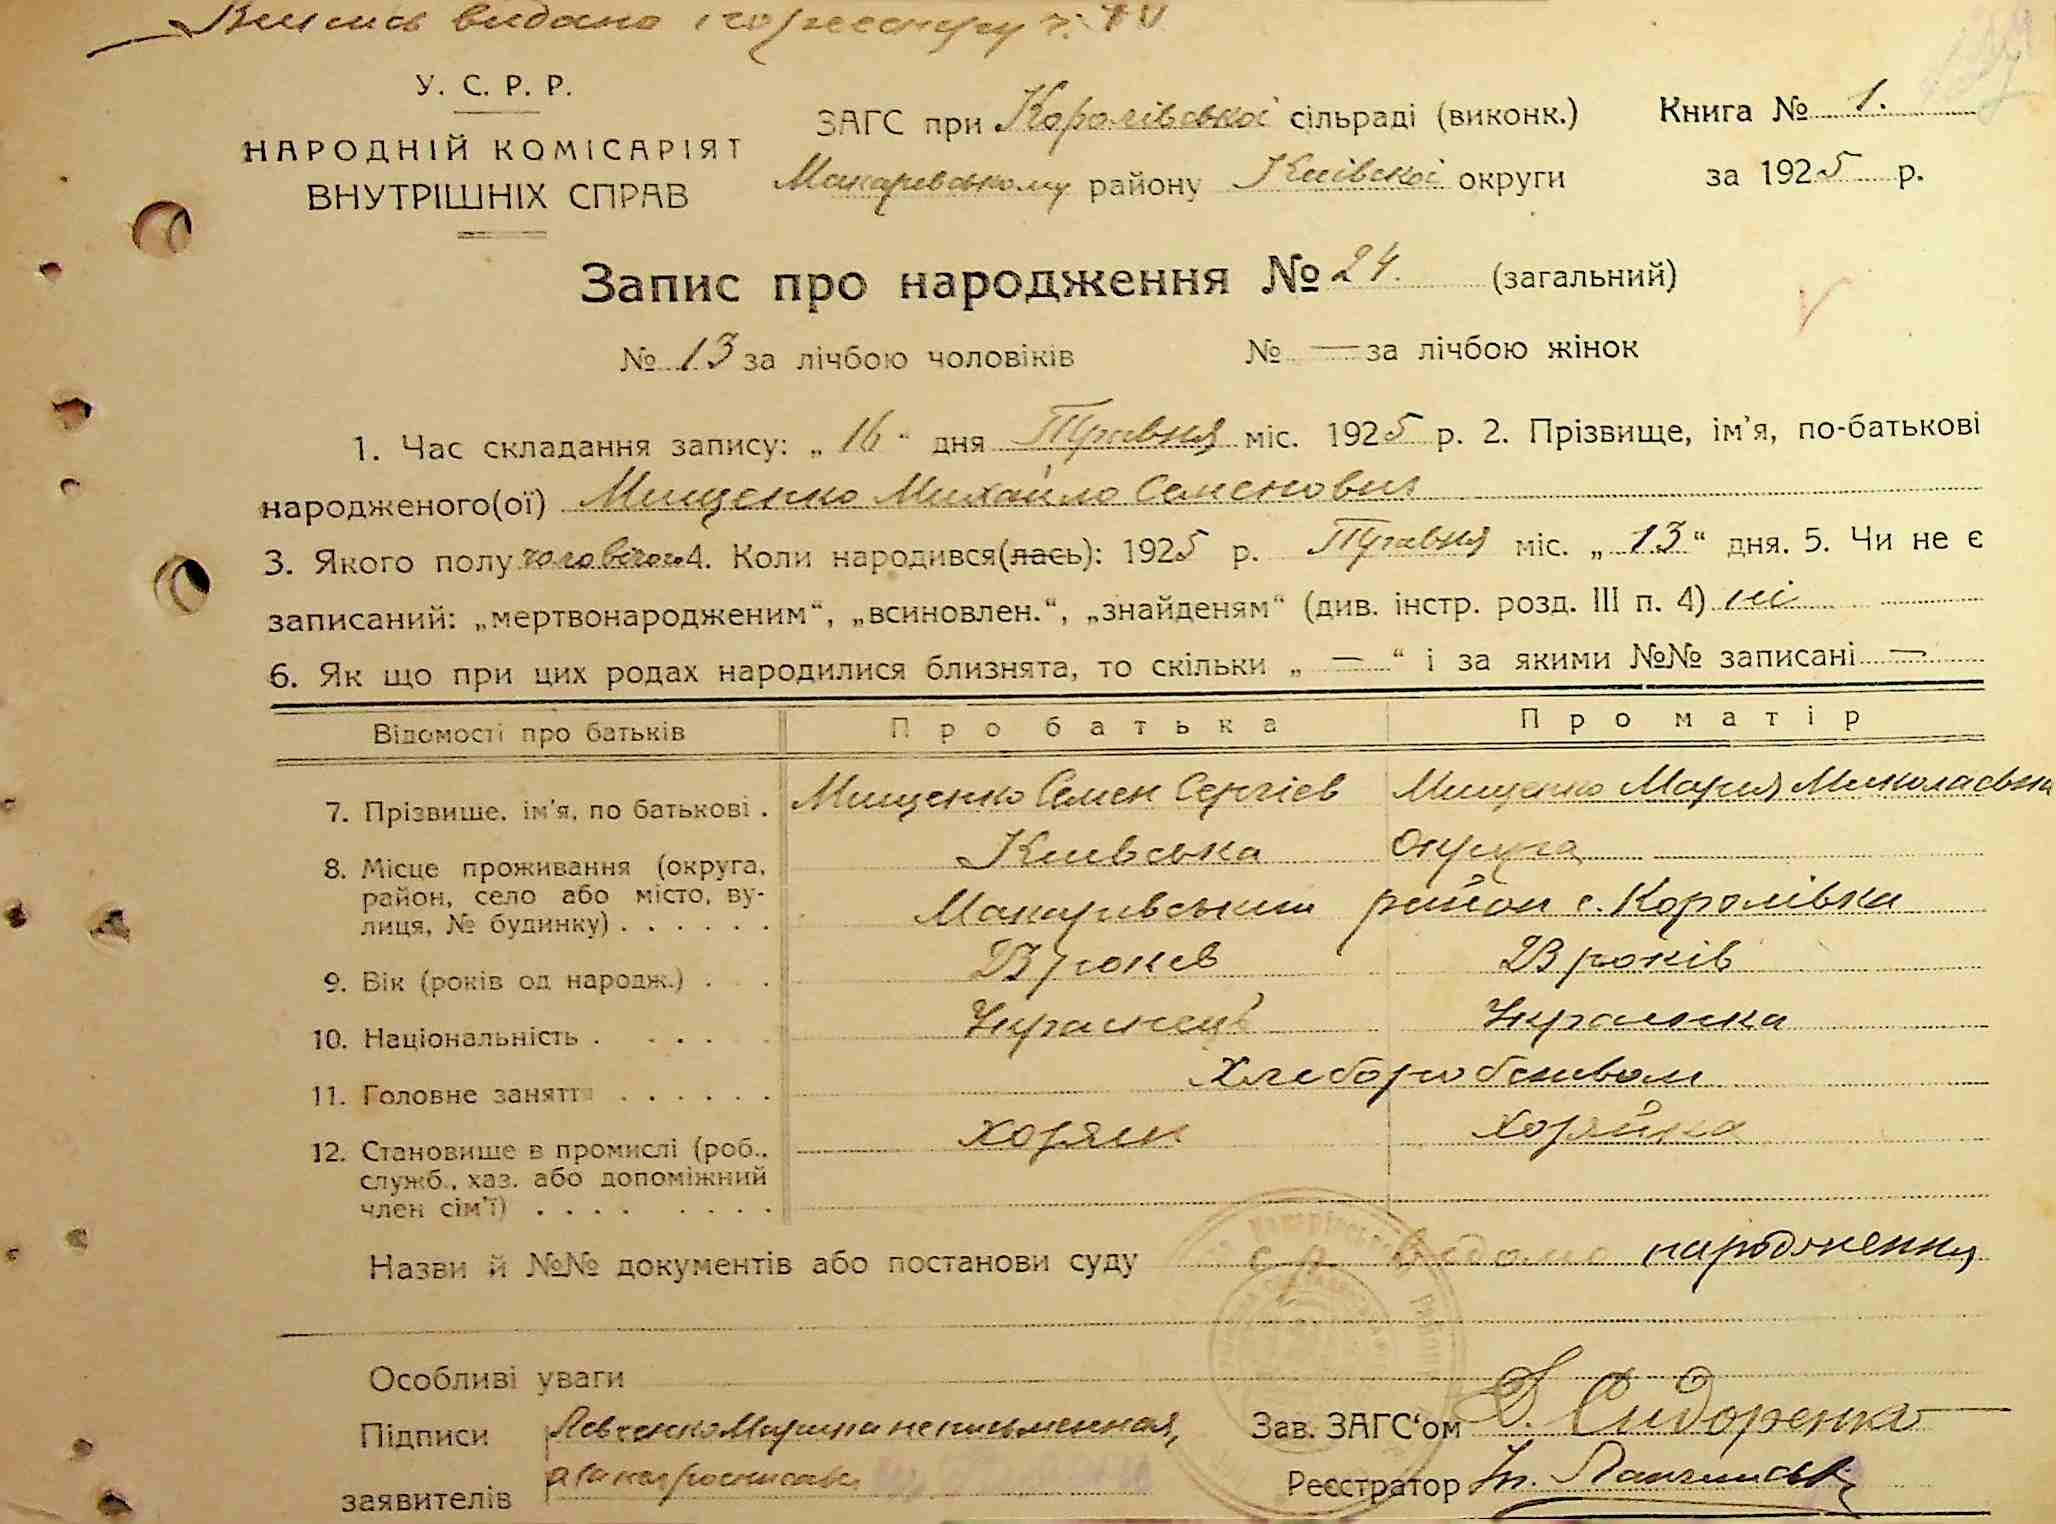 Випись видано
У. С. Р. Р.
НАРОДНІЙ КОМІСАРІЯТ
ВНУТРІШНІХ СПРАВ
ЗАГС при Королівської сільраді (виконк.)
Макарівському району Київскої округи
Книга № 1.
за 1925 р.
Запис про народження № 24. (загальний)
№ 13 за лічбою чоловіків № — за лічбою жінок
1. Час складання запису: „16“ дня Травня міс. 1925 р. 2. Прізвище, ім'я, по-батькові
народженого(ої) Мищенко Михайло Семенович
3. Якого полу чоловічого 4. Коли народився(лась): 1925 р. Травня міс. „13“ дня. 5. Чи не є
записаний: „мертвонародженим“, „всиновлен.“, „знайденям“ (див. інстр. розд. III п. 4) ні
6. Як що при цих родах народилися близнята, то скільки „ — “ і за якими №№ записані —
Відомості про батьків Про батька Про матір
7. Прізвище, ім'я, по батькові . Мищенко Семен Сергієв Мищенко Мария Миколаєвна
8. Місце проживання (округа, Київська округа
район, село або місто, ву- Макарівський район с. Королівка
лиця, № будинку) . . . . . .
9. Вік (років од народж.) . . 23 років 23 років
10. Національність . . . . Українець Українка
11. Головне заняття . . . . . . Хлеборобством
12. Становище в промислі (роб., хозяин хозяйка
служб., хаз. або допоміжний
член сім'ї) . . . . . . . .
Назви й №№ документів або постанови суду народження
Особливі уваги
Підписи заявителів
Левченко Марина неписьменная,
Зав. ЗАГС‘ом Д. Сидоренко
Реєстратор